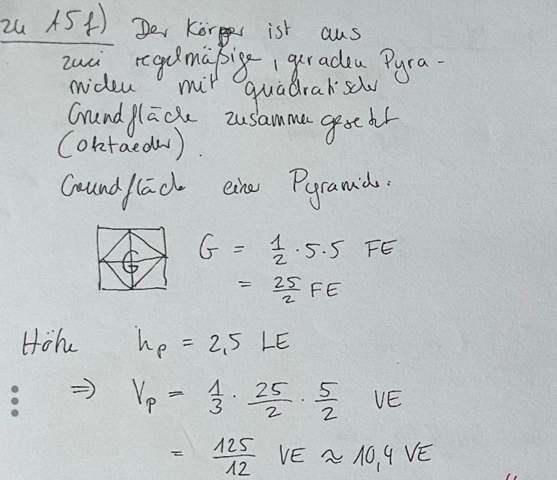 zu 15f) Der Körper ist aus
zwei regelmäßige, geraden Pyra-
miden mit quadratischer
Grundfläche zusammengesetzt
(Oktaeder).
Grundfläche einer Pyramide:
G
G = 1/2 · 5 · 5 FE
= 25/2 FE
Höhe hp = 2,5 LE
⇒ Vp = 1/3 · 25/2 · 5/2 VE
= 125/12 VE ≈ 10,4 VE